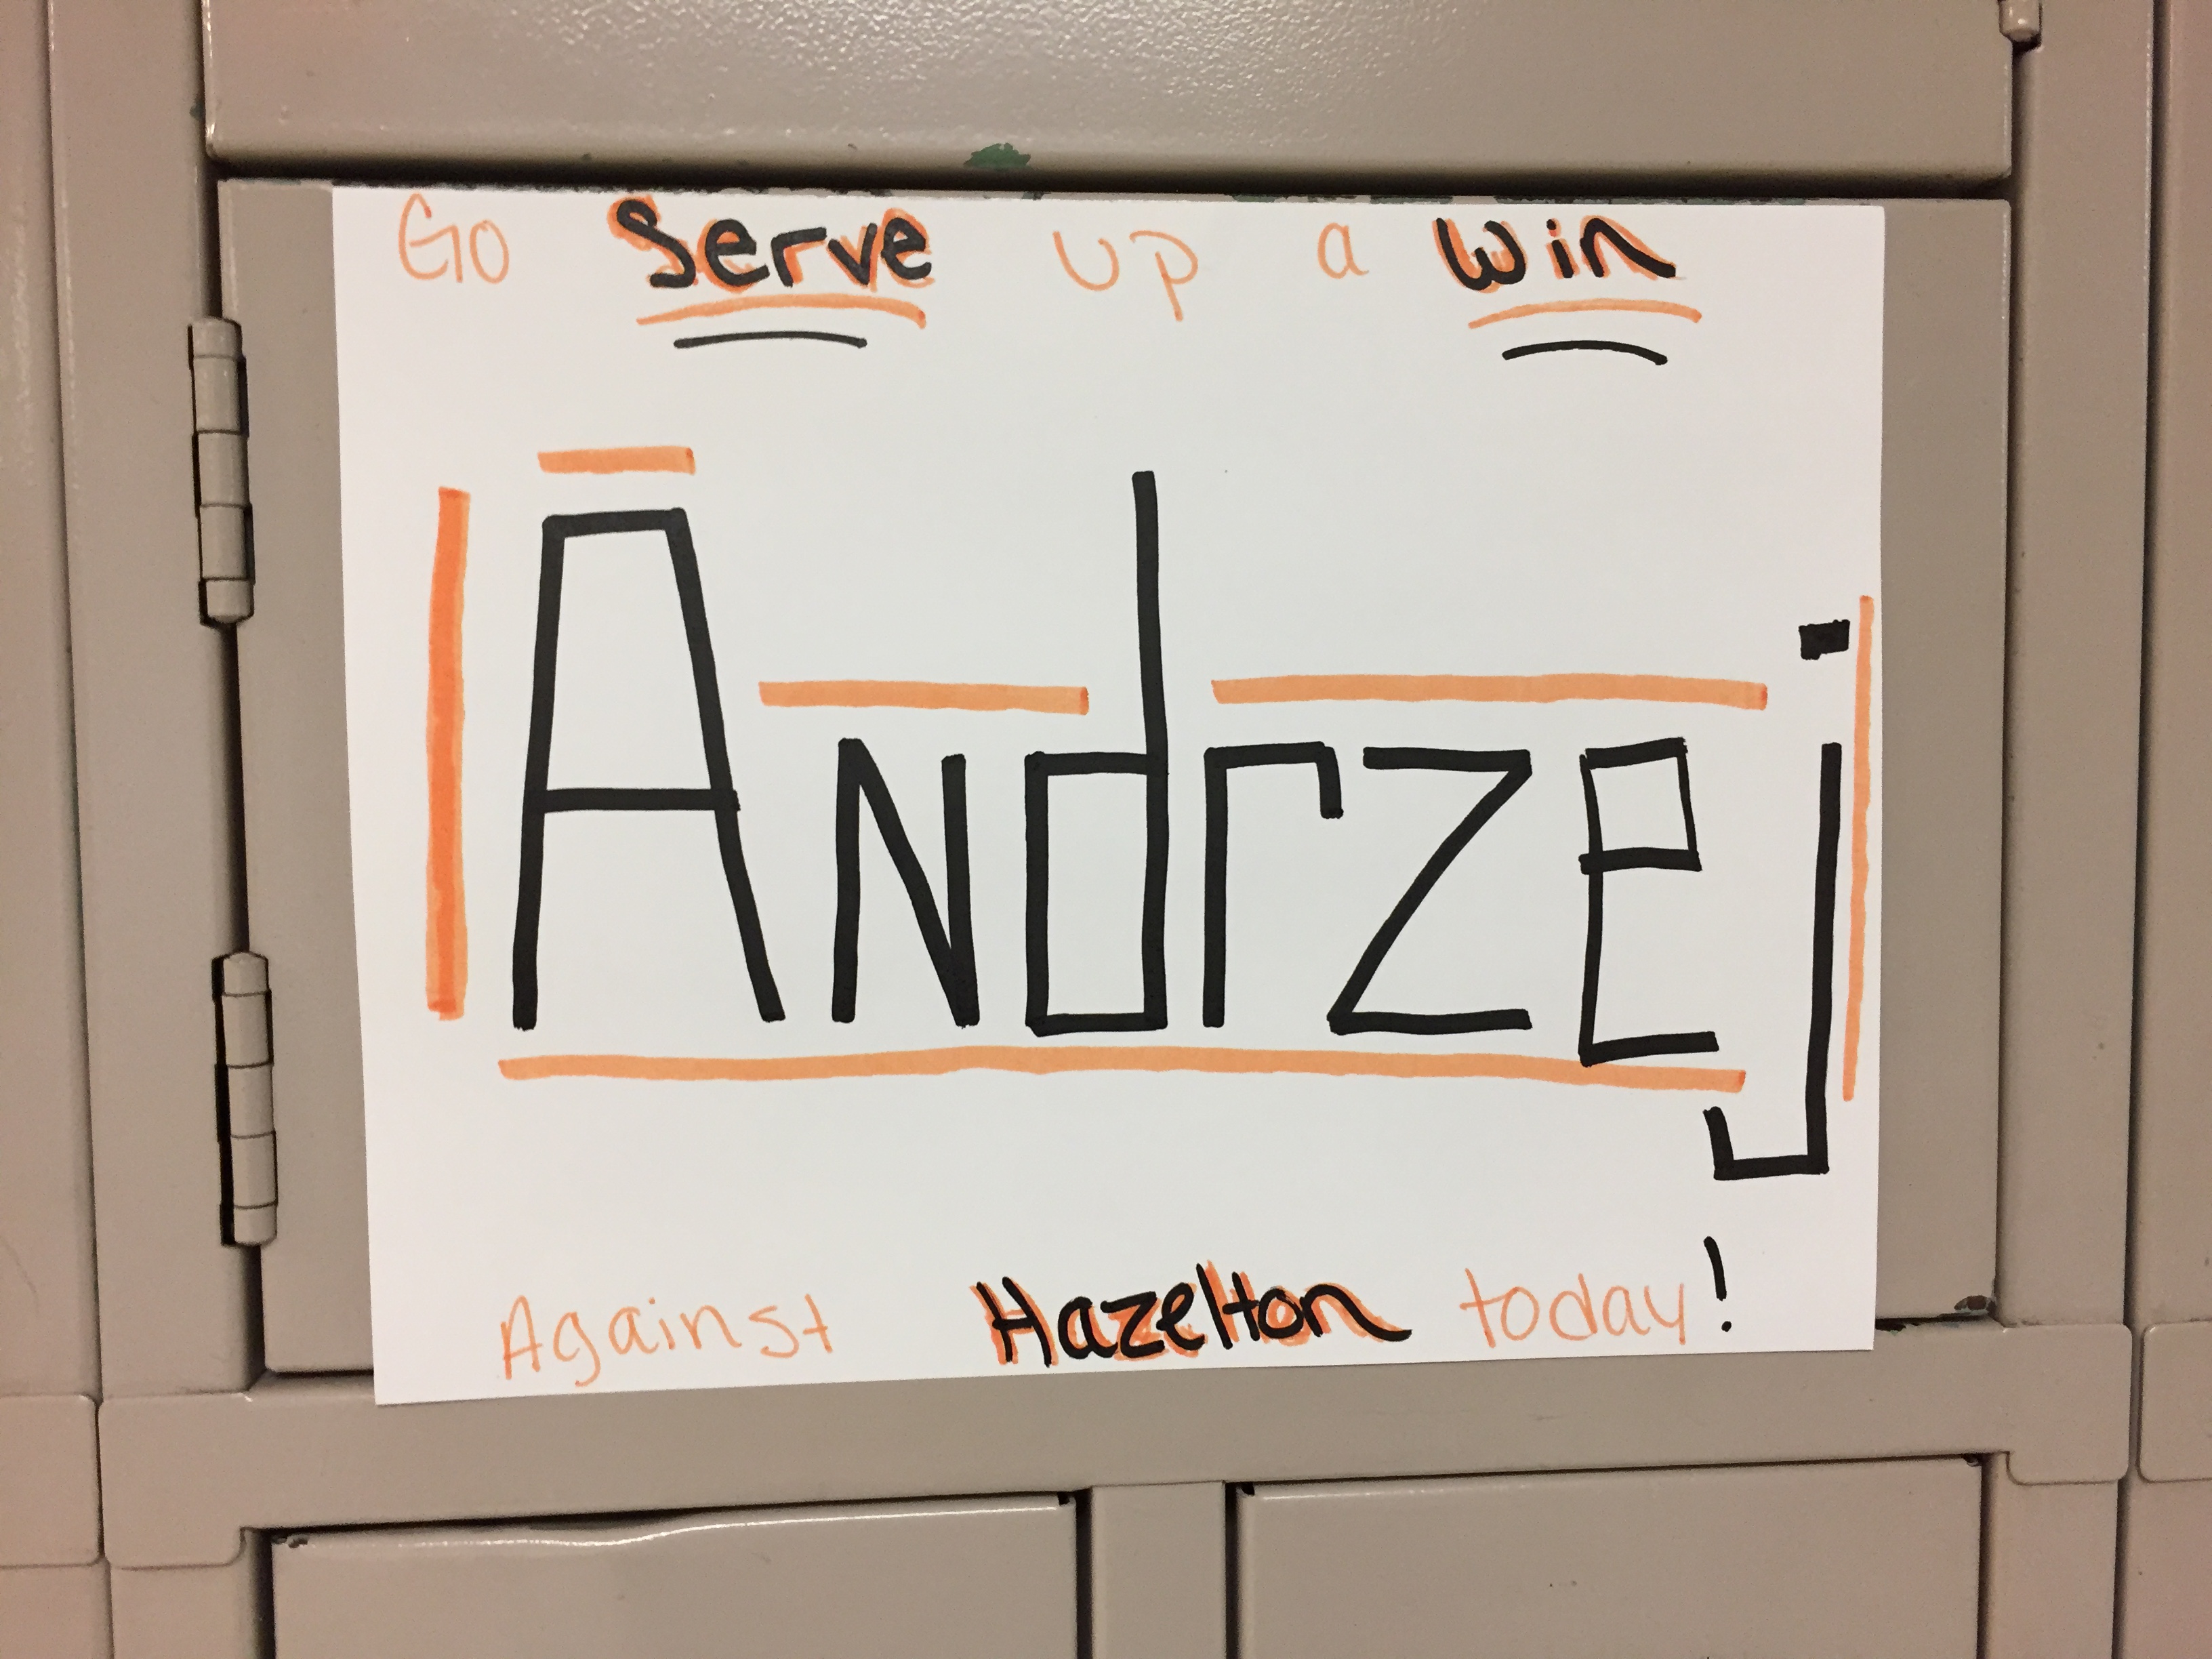 Go Serve up a Win
Andrzej
Against Hazelton today!